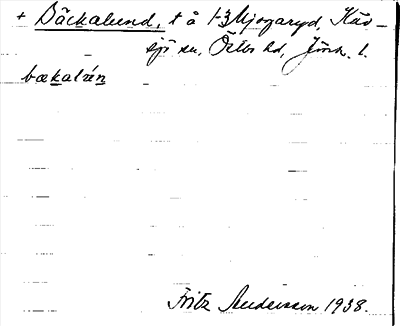 + Bäckalund, t å 1-3 Mjogaryd, Käv-
sjö sn, Östbo hd, Jönk. l.
bækalún
Fritz Andersson 1938.